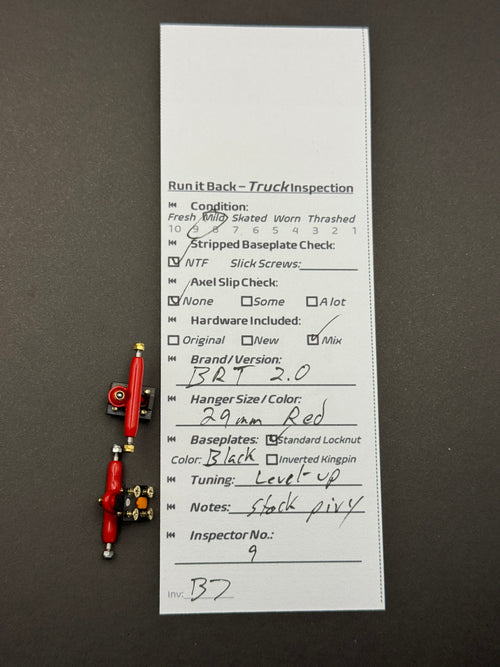 Run it Back – Truck Inspection
Condition:
Fresh Mild Skated Worn Thrashed
10 9 8 7 6 5 4 3 2 1
Stripped Baseplate Check:
NTF Slick Screws:
Axel Slip Check:
None Some A lot
Hardware Included:
Original New Mix
Brand/Version:
BRT 2.0
Hanger Size/Color:
29mm Red
Baseplates: Standard Locknut
Color: Black Inverted Kingpin
Tuning: Level-up
Notes: Stock pivy
Inspector No.:
9
Inv: B7